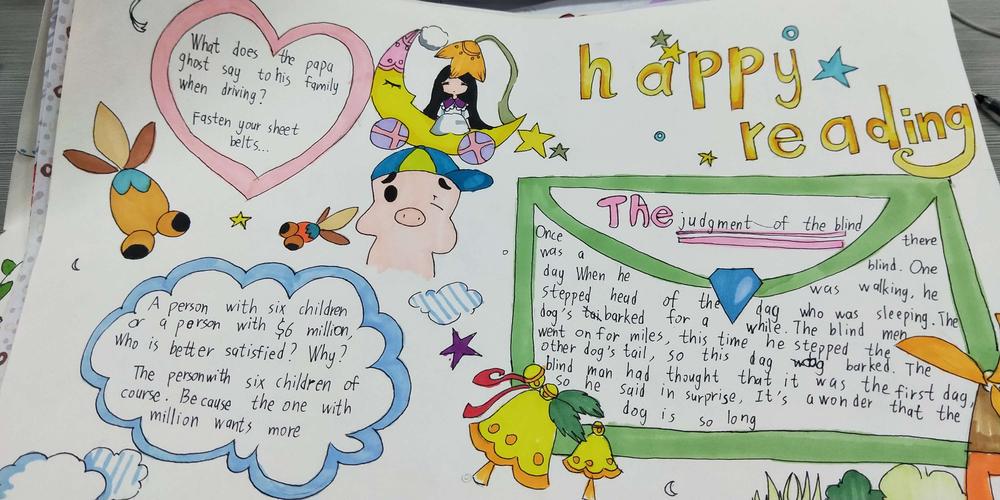 What does the papa
ghost say to his family
when driving?
Fasten your sheet
belts...
happy
reading
The judgment of the blind
Once there
was a blind. One
day When he was walking, he
stepped head of the dog who was sleeping. The
dog's tai barked for a while. The blind men
went on for miles, this time he stepped the
other dog's tail, so this dag barked. The
blind man had thought that it was the first dag
so he said in surprise, It's a wonder that the
dog is so long
A person with six children
or a person with $6 million,
Who is better satisfied? Why?
The personwith six children of
course. Because the one with
million wants more